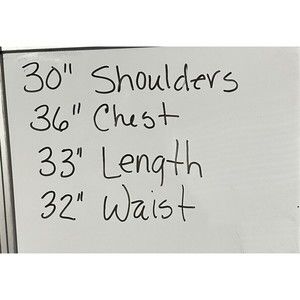 30" Shoulders
36" Chest
33" Length
32" Waist